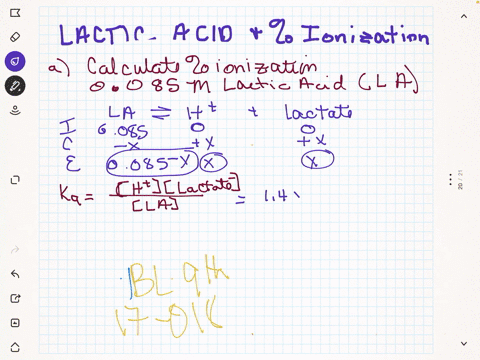 LACTIC ACID + % Ionization
a) Calculate % ionization
0.085 M Lactic Acid (LA)
LA ⇌ H+ + Lactate
I 0.085 0 0
C -x +x +x
E 0.085-x x x
Ka = [H+][Lactate-] / [LA] = 1.4 x
BL 9th
17-018
20 / 21